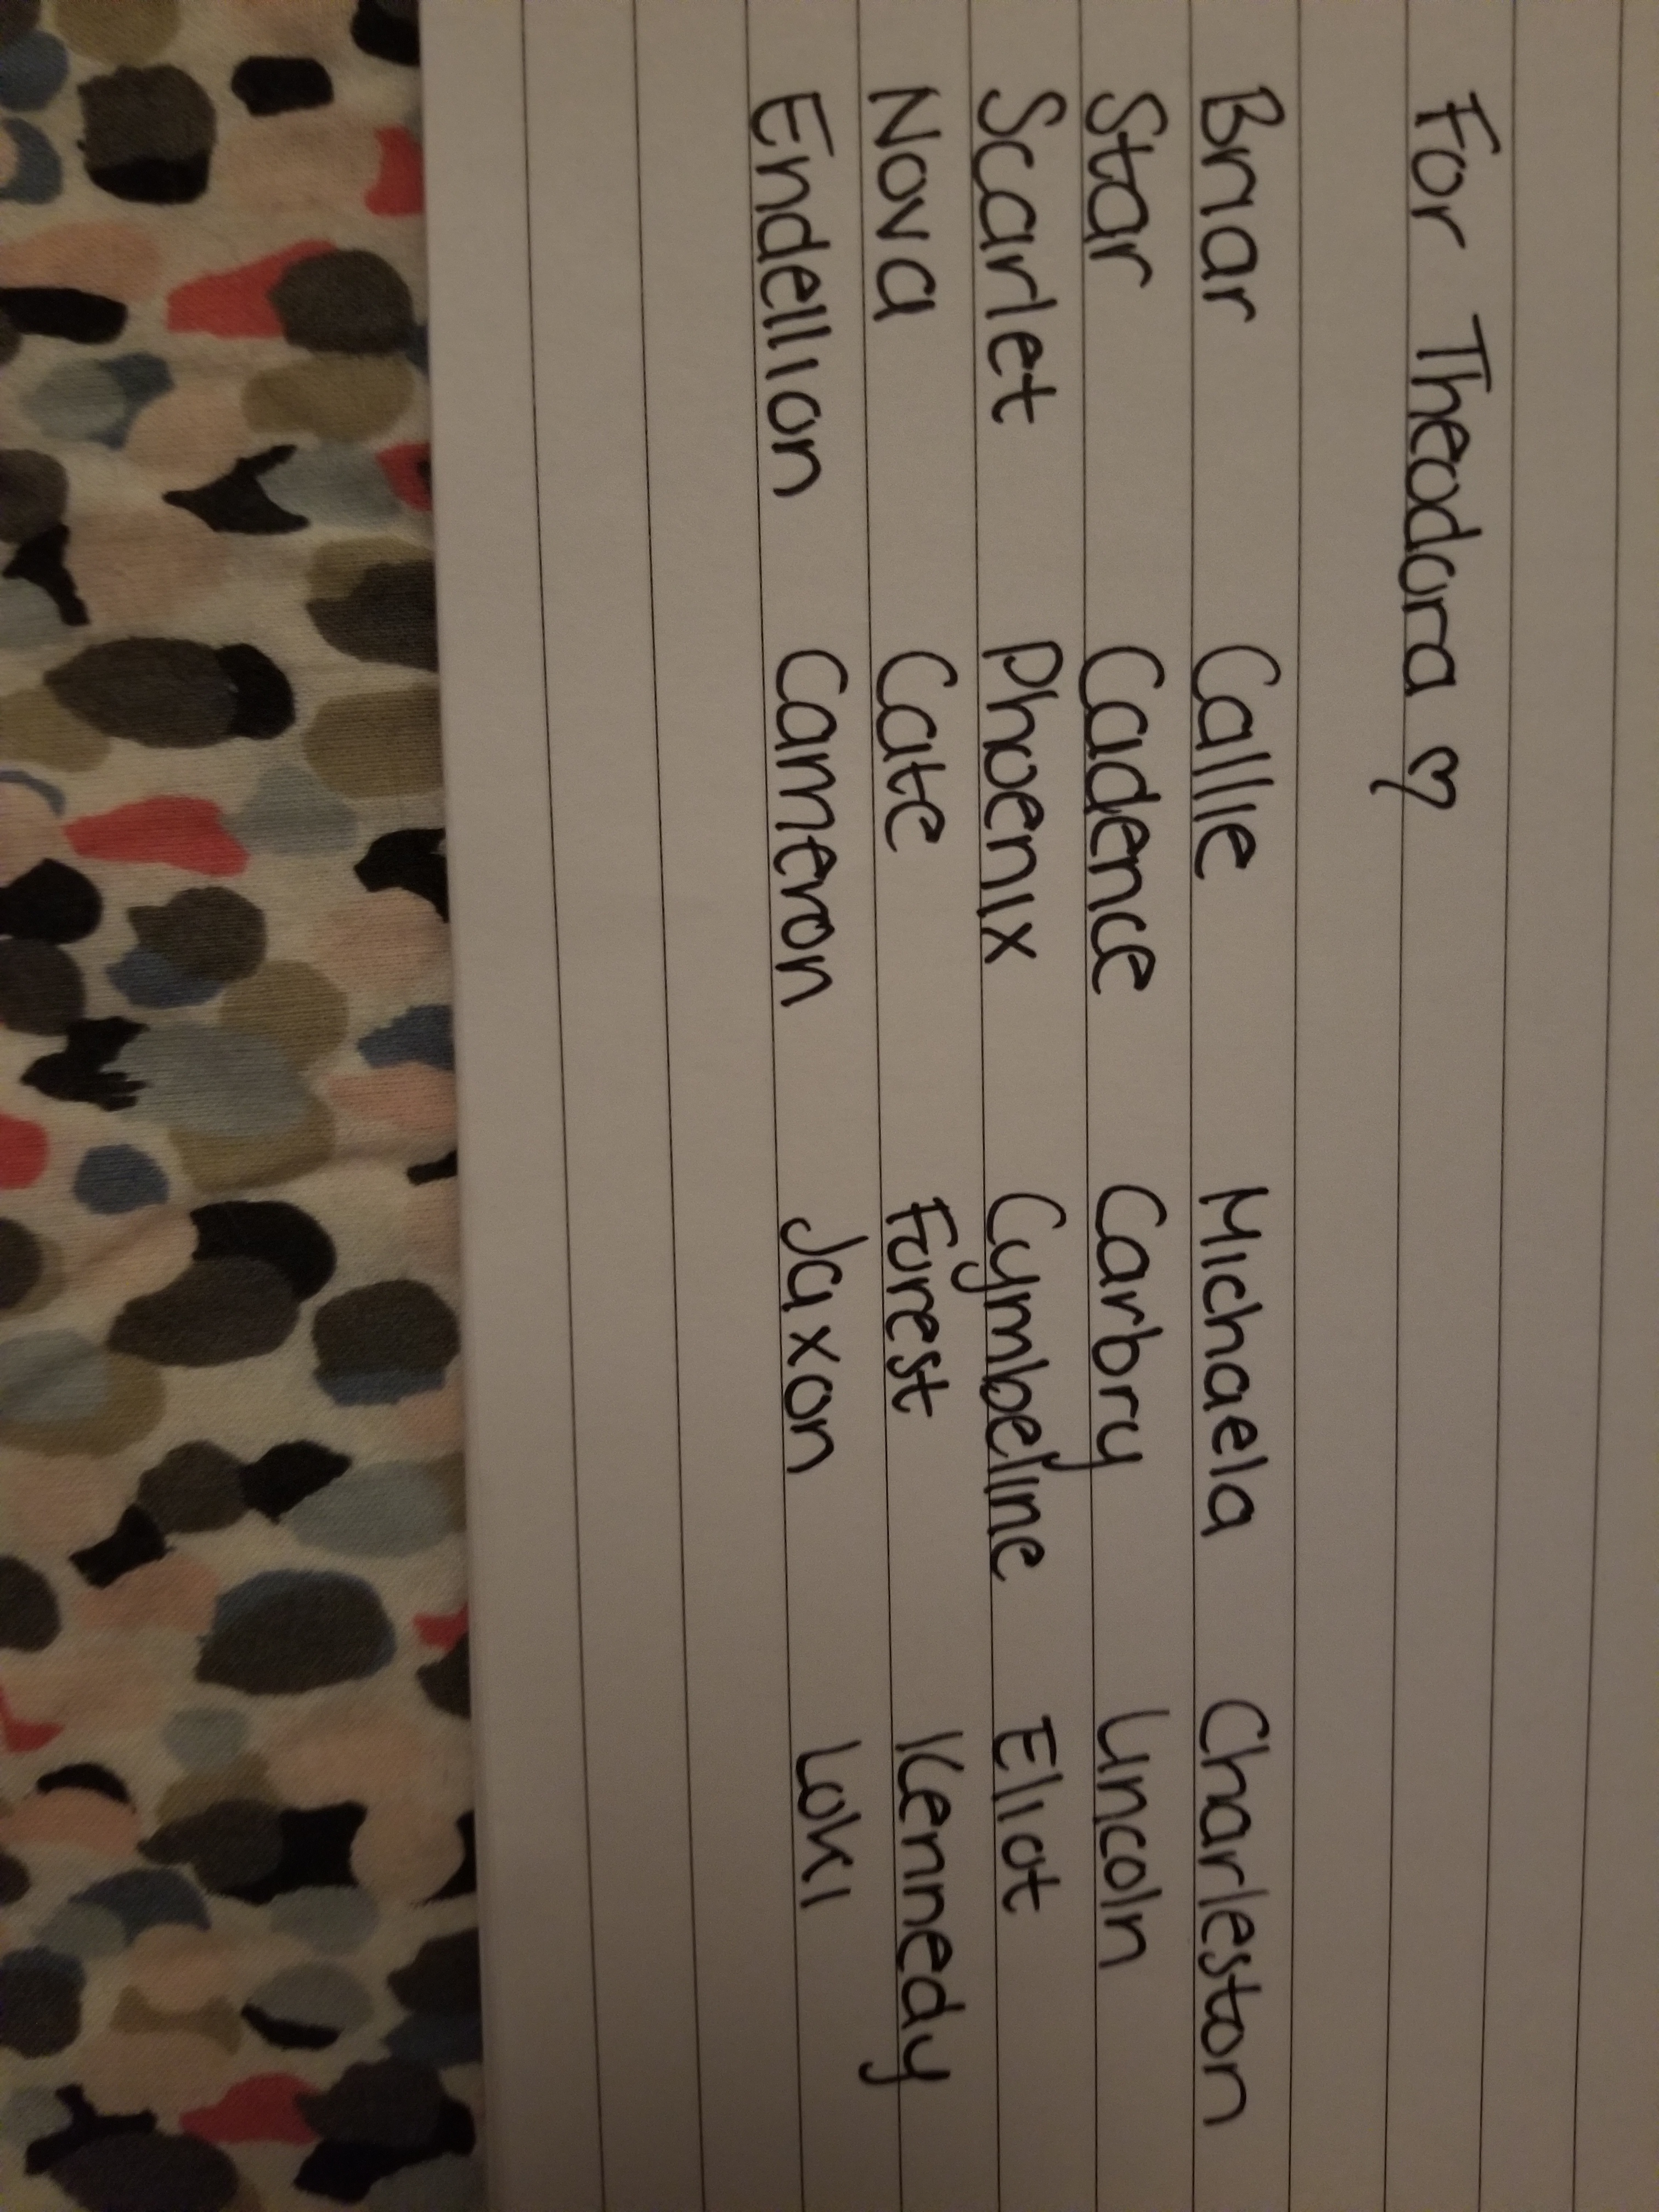 For Theodora ♡
Briar Callie Michaela Charleston
Star Cadence Carbry Lincoln
Scarlet Phoenix Cymbeline Eliot
Nova Cate Forest Kennedy
Endellion Cameron Jaxon Loki